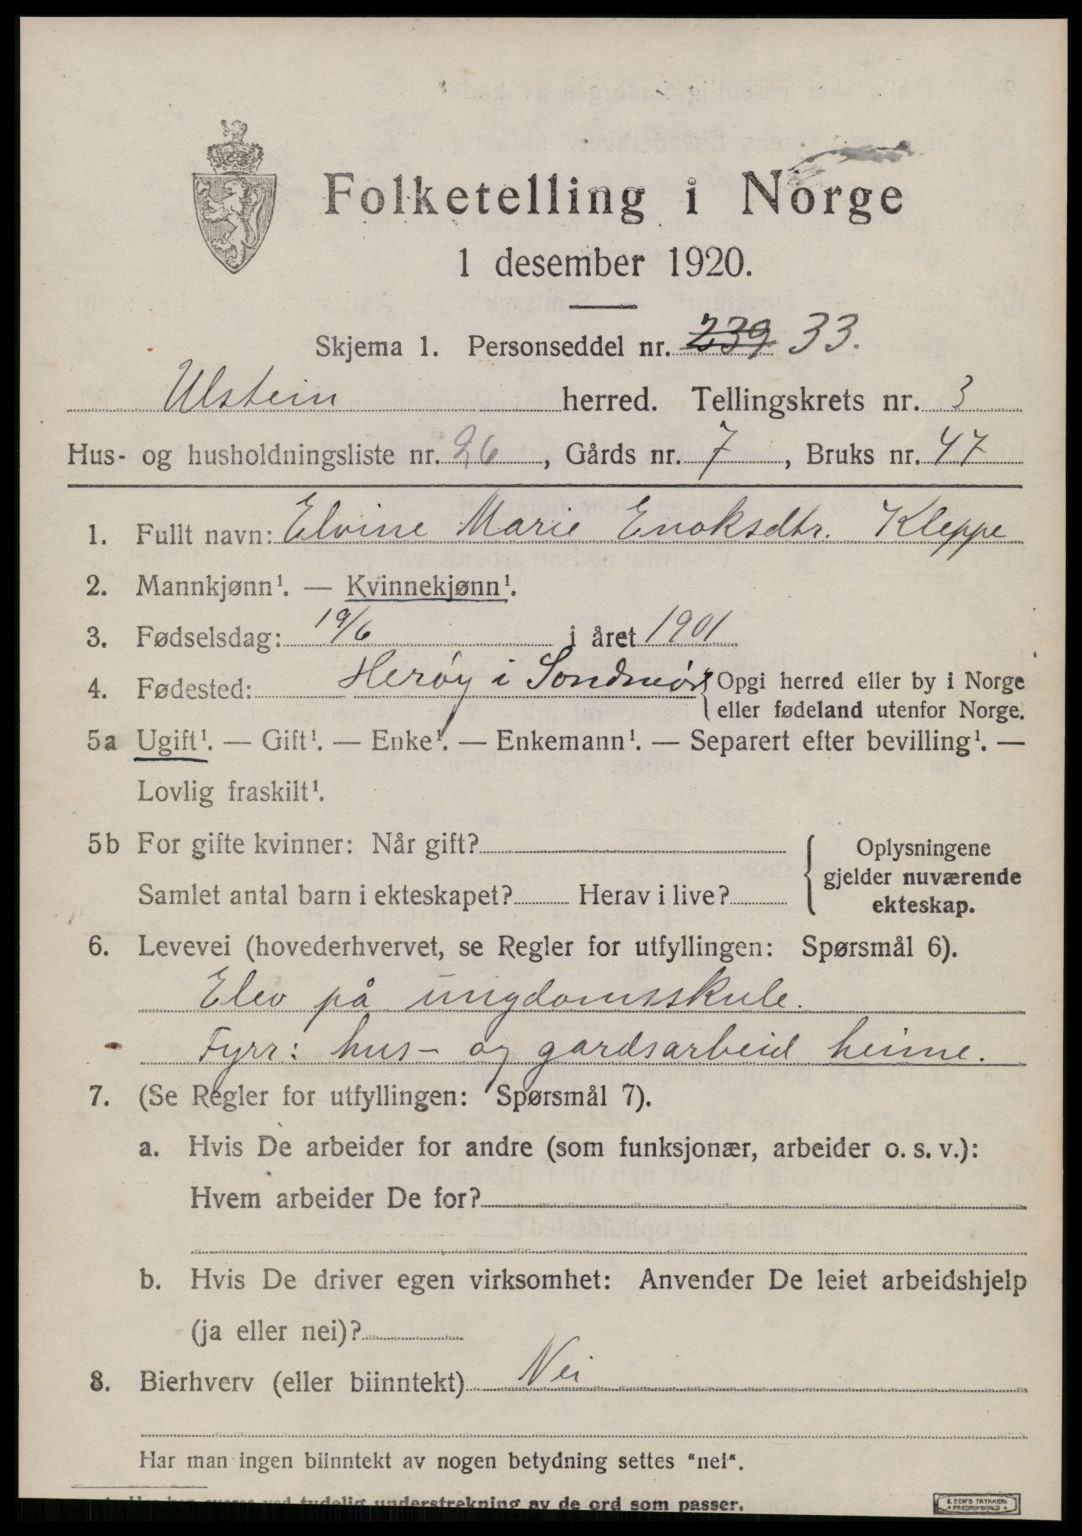 Folketelling i Norge
1 desember 1920.
Skjema 1. Personseddel nr. 239 33.
Ulstein herred. Tellingskrets nr. 3
Hus- og husholdningsliste nr. 26, Gårds nr. 7, Bruks nr. 47
1. Fullt navn: Elvine Marie Enoksdtr. Kleppe
2. Mannkjønn¹. — Kvinnekjønn¹.
3. Fødselsdag: 19/6 i året 1901
4. Fødested: Herøy i Søndmør { Opgi herred eller by i Norge
eller fødeland utenfor Norge.
5a Ugift¹. — Gift¹. — Enke¹. — Enkemann¹. — Separert efter bevilling¹. —
Lovlig fraskilt¹.
5b For gifte kvinner: Når gift?
Samlet antal barn i ekteskapet? Herav i live?
Oplysningene
gjelder nuværende
ekteskap.
6. Levevei (hovederhvervet, se Regler for utfyllingen: Spørsmål 6).
Elev på ungdomsskule.
Fyrr: hus- og gardsarbeid heime.
7. (Se Regler for utfyllingen: Spørsmål 7).
a. Hvis De arbeider for andre (som funksjonær, arbeider o. s. v.):
Hvem arbeider De for?
b. Hvis De driver egen virksomhet: Anvender De leiet arbeidshjelp
(ja eller nei)?
8. Bierhverv (eller biinntekt) Nei
Har man ingen biinntekt av nogen betydning settes "nei".
tydelig understrekning av de ord som passer.
E. SEM'S TRYKKERI
FREDRIKSHALD